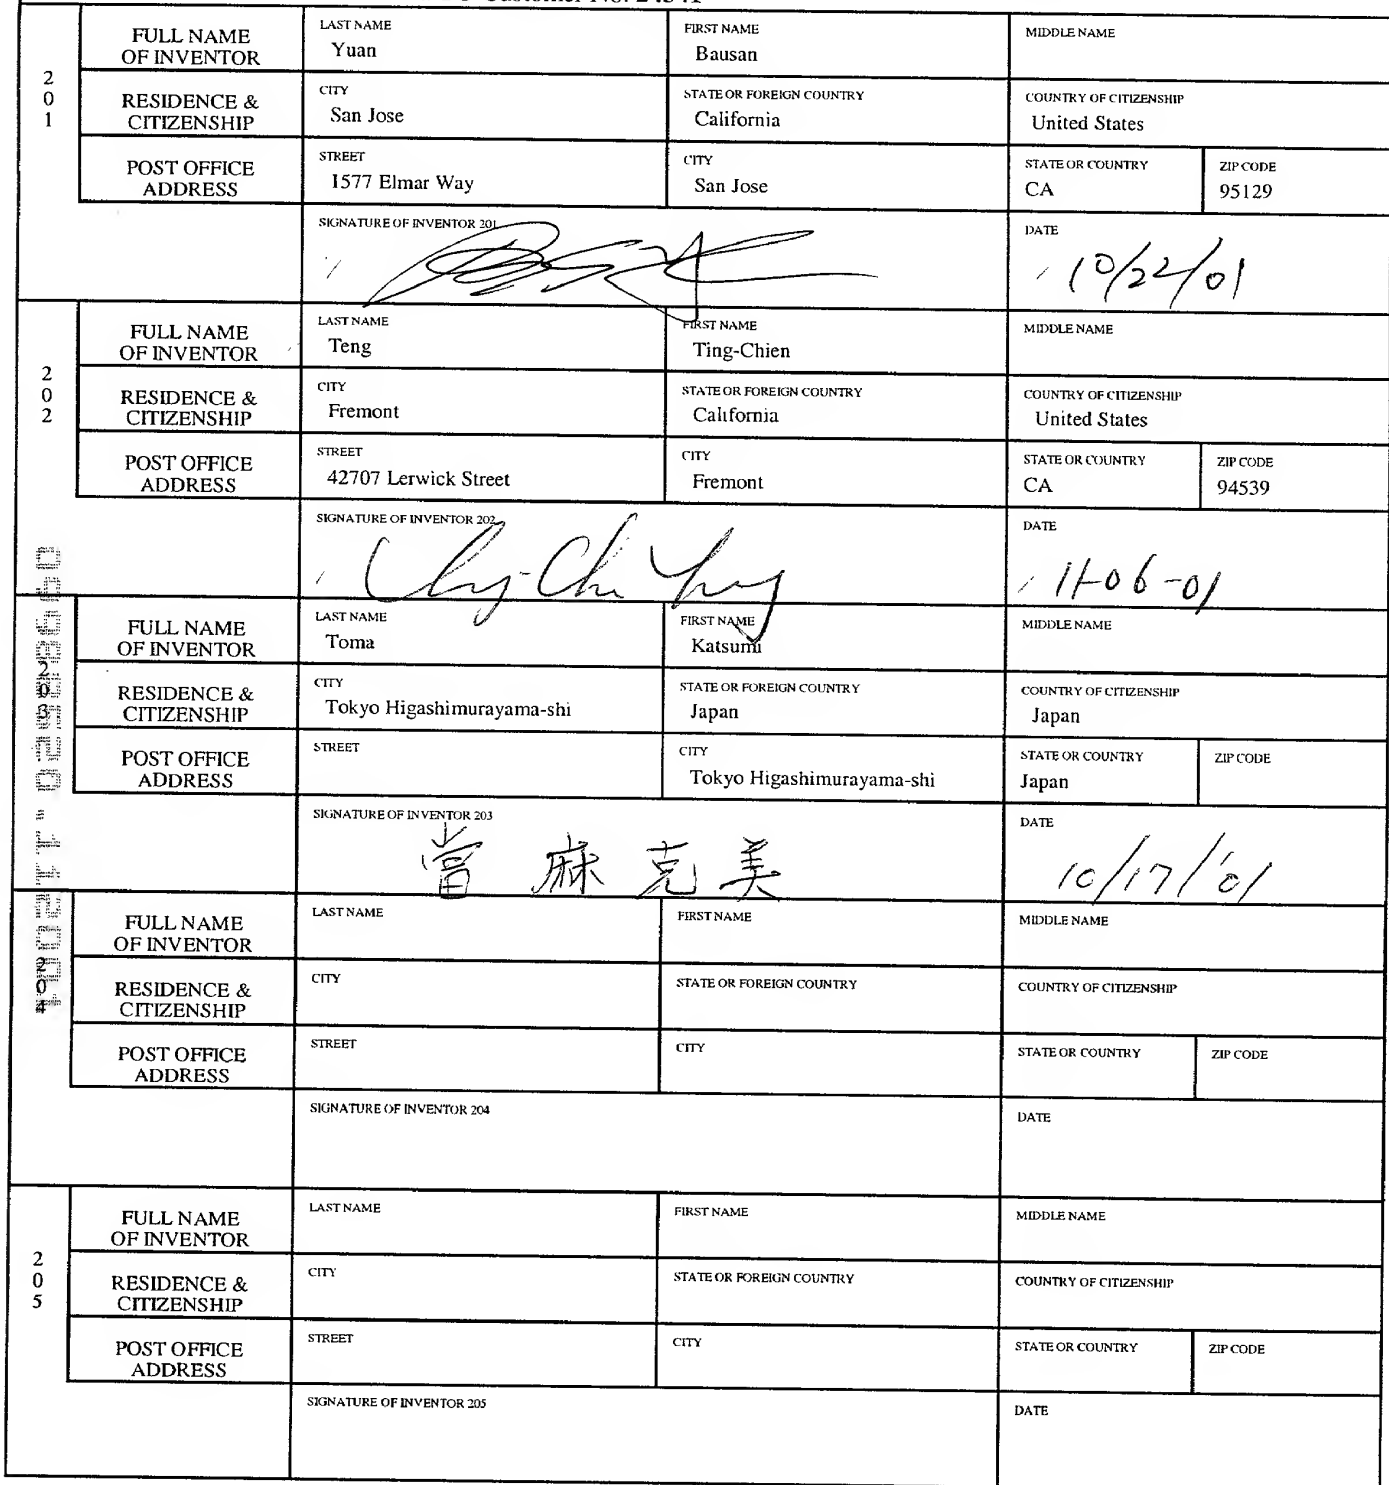 FULL NAME OF INVENTOR
LAST NAME
Yuan
FIRST NAME
Bausan
MIDDLE NAME
201
RESIDENCE & CITIZENSHIP
CITY
San Jose
STATE OR FOREIGN COUNTRY
California
COUNTRY OF CITIZENSHIP
United States
POST OFFICE ADDRESS
STREET
1577 Elmar Way
CITY
San Jose
STATE OR COUNTRY
CA
ZIP CODE
95129
SIGNATURE OF INVENTOR 201
DATE
10/22/01
FULL NAME OF INVENTOR
LAST NAME
Teng
FIRST NAME
Ting-Chien
MIDDLE NAME
202
RESIDENCE & CITIZENSHIP
CITY
Fremont
STATE OR FOREIGN COUNTRY
California
COUNTRY OF CITIZENSHIP
United States
POST OFFICE ADDRESS
STREET
42707 Lerwick Street
CITY
Fremont
STATE OR COUNTRY
CA
ZIP CODE
94539
SIGNATURE OF INVENTOR 202
DATE
11-06-01
FULL NAME OF INVENTOR
LAST NAME
Toma
FIRST NAME
Katsumi
MIDDLE NAME
203
RESIDENCE & CITIZENSHIP
CITY
Tokyo Higashimurayama-shi
STATE OR FOREIGN COUNTRY
Japan
COUNTRY OF CITIZENSHIP
Japan
POST OFFICE ADDRESS
STREET
CITY
Tokyo Higashimurayama-shi
STATE OR COUNTRY
Japan
ZIP CODE
SIGNATURE OF INVENTOR 203
當麻克美
DATE
10/17/'01
FULL NAME OF INVENTOR
LAST NAME
FIRST NAME
MIDDLE NAME
204
RESIDENCE & CITIZENSHIP
CITY
STATE OR FOREIGN COUNTRY
COUNTRY OF CITIZENSHIP
POST OFFICE ADDRESS
STREET
CITY
STATE OR COUNTRY
ZIP CODE
SIGNATURE OF INVENTOR 204
DATE
FULL NAME OF INVENTOR
LAST NAME
FIRST NAME
MIDDLE NAME
205
RESIDENCE & CITIZENSHIP
CITY
STATE OR FOREIGN COUNTRY
COUNTRY OF CITIZENSHIP
POST OFFICE ADDRESS
STREET
CITY
STATE OR COUNTRY
ZIP CODE
SIGNATURE OF INVENTOR 205
DATE